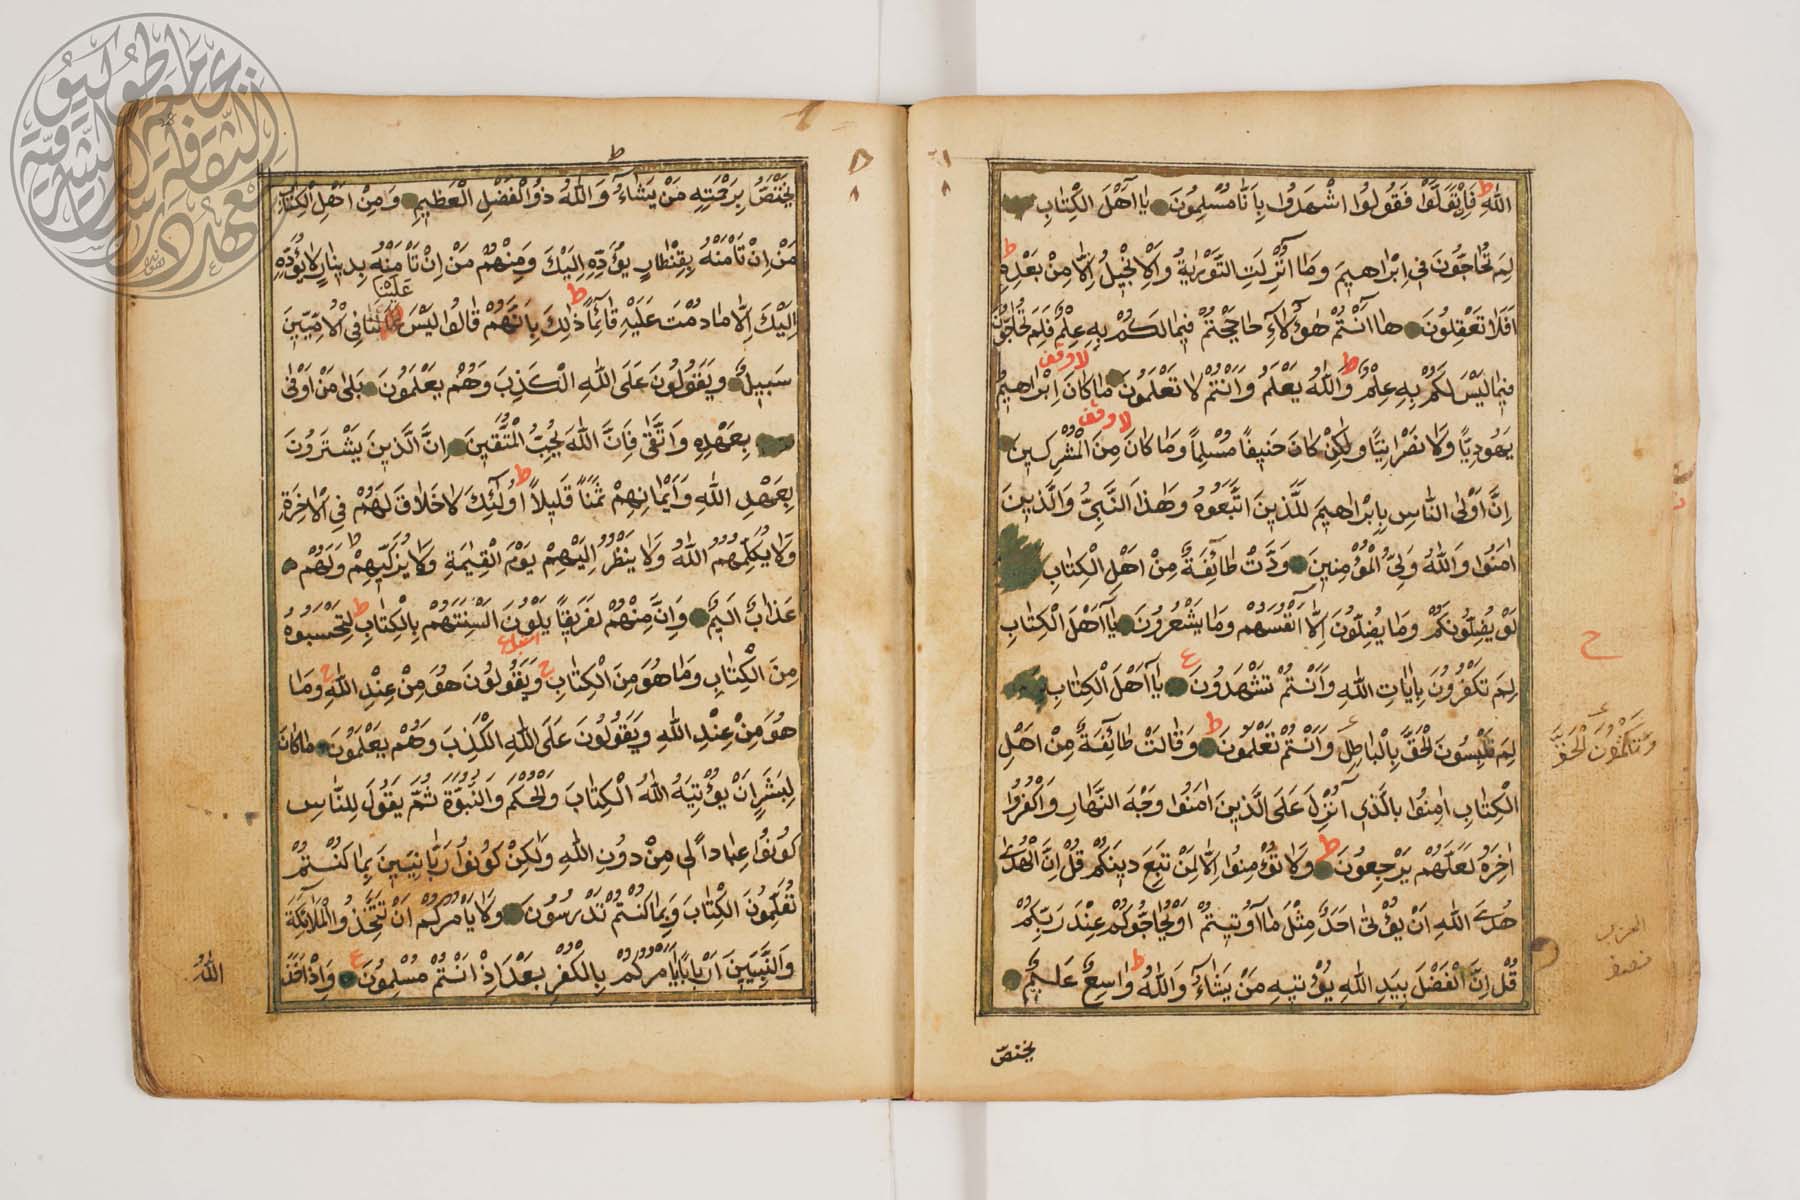 اللّٰهِ فَاِنْ تَوَلَّوْا فَقُولُوا اشْهَدُوا بِاَنَّا مُسْلِمُونَ يَا اَهْلَ الْكِتَابِ
لِمَ تُحَاجُّونَ فِي اِبْرَاهِيمَ وَمَا اُنْزِلَتِ التَّوْرٰيةُ وَالْاِنْجِيلُ اِلَّا مِنْ بَعْدِهِ
اَفَلَا تَعْقِلُونَ هَا اَنْتُمْ هٰؤُلَاءِ حَاجَجْتُمْ فِيمَا لَكُمْ بِهِ عِلْمٌ فَلِمَ تُحَاجُّونَ
فِيمَا لَيْسَ لَكُمْ بِهِ عِلْمٌ وَاللّٰهُ يَعْلَمُ وَاَنْتُمْ لَا تَعْلَمُونَ مَا كَانَ اِبْرَاهِيمُ
لا وقف
يَهُودِيًّا وَلَا نَصْرَانِيًّا وَلٰكِنْ كَانَ حَنِيفًا مُسْلِمًا وَمَا كَانَ مِنَ الْمُشْرِكِينَ
لا وقف
اِنَّ اَوْلَى النَّاسِ بِاِبْرَاهِيمَ لَلَّذِينَ اتَّبَعُوهُ وَهٰذَا النَّبِيُّ وَالَّذِينَ
اٰمَنُوا وَاللّٰهُ وَلِيُّ الْمُؤْمِنِينَ وَدَّتْ طَائِفَةٌ مِنْ اَهْلِ الْكِتَابِ
لَوْ يُضِلُّونَكُمْ وَمَا يُضِلُّونَ اِلَّا اَنْفُسَهُمْ وَمَا يَشْعُرُونَ يَا اَهْلَ الْكِتَابِ
لِمَ تَكْفُرُونَ بِاٰيَاتِ اللّٰهِ وَاَنْتُمْ تَشْهَدُونَ يَا اَهْلَ الْكِتَابِ
لِمَ تَلْبِسُونَ الْحَقَّ بِالْبَاطِلِ وَاَنْتُمْ تَعْلَمُونَ وَقَالَتْ طَائِفَةٌ مِنْ اَهْلِ
وَتَكْتُمُونَ الْحَقَّ
الْكِتَابِ اٰمِنُوا بِالَّذِي اُنْزِلَ عَلَى الَّذِينَ اٰمَنُوا وَجْهَ النَّهَارِ وَاكْفُرُوا
اٰخِرَهُ لَعَلَّهُمْ يَرْجِعُونَ وَلَا تُؤْمِنُوا اِلَّا لِمَنْ تَبِعَ دِينَكُمْ قُلْ اِنَّ الْهُدٰى
هُدَى اللّٰهِ اَنْ يُؤْتٰى اَحَدٌ مِثْلَ مَا اُوتِيتُمْ اَوْ يُحَاجُّوكُمْ عِنْدَ رَبِّكُمْ
قُلْ اِنَّ الْفَضْلَ بِيَدِ اللّٰهِ يُؤْتِيهِ مَنْ يَشَاءُ وَاللّٰهُ وَاسِعٌ عَلِيمٌ
يختص
يَخْتَصُّ بِرَحْمَتِهِ مَنْ يَشَاءُ وَاللّٰهُ ذُو الْفَضْلِ الْعَظِيمِ وَمِنْ اَهْلِ الْكِتَابِ
مَنْ اِنْ تَاْمَنْهُ بِقِنْطَارٍ يُؤَدِّهِ اِلَيْكَ وَمِنْهُمْ مَنْ اِنْ تَاْمَنْهُ بِدِينَارٍ لَا يُؤَدِّهِ
عَلَيْنَا
اِلَيْكَ اِلَّا مَا دُمْتَ عَلَيْهِ قَائِمًا ذٰلِكَ بِاَنَّهُمْ قَالُوا لَيْسَ فِي الْاُمِّيِّينَ
سَبِيلٌ وَيَقُولُونَ عَلَى اللّٰهِ الْكَذِبَ وَهُمْ يَعْلَمُونَ بَلٰى مَنْ اَوْفٰى
بِعَهْدِهِ وَاتَّقٰى فَاِنَّ اللّٰهَ يُحِبُّ الْمُتَّقِينَ اِنَّ الَّذِينَ يَشْتَرُونَ
بِعَهْدِ اللّٰهِ وَاَيْمَانِهِمْ ثَمَنًا قَلِيلًا اُولٰئِكَ لَا خَلَاقَ لَهُمْ فِي الْاٰخِرَةِ
وَلَا يُكَلِّمُهُمُ اللّٰهُ وَلَا يَنْظُرُ اِلَيْهِمْ يَوْمَ الْقِيٰمَةِ وَلَا يُزَكِّيهِمْ وَلَهُمْ
عَذَابٌ اَلِيمٌ وَاِنَّ مِنْهُمْ لَفَرِيقًا يَلْوُونَ اَلْسِنَتَهُمْ بِالْكِتَابِ لِتَحْسَبُوهُ
مِنَ الْكِتَابِ وَمَا هُوَ مِنَ الْكِتَابِ وَيَقُولُونَ هُوَ مِنْ عِنْدِ اللّٰهِ وَمَا
هُوَ مِنْ عِنْدِ اللّٰهِ وَيَقُولُونَ عَلَى اللّٰهِ الْكَذِبَ وَهُمْ يَعْلَمُونَ مَا كَانَ
لِبَشَرٍ اَنْ يُؤْتِيَهُ اللّٰهُ الْكِتَابَ وَالْحُكْمَ وَالنُّبُوَّةَ ثُمَّ يَقُولَ لِلنَّاسِ
كُونُوا عِبَادًا لِي مِنْ دُونِ اللّٰهِ وَلٰكِنْ كُونُوا رَبَّانِيِّينَ بِمَا كُنْتُمْ
تُعَلِّمُونَ الْكِتَابَ وَبِمَا كُنْتُمْ تَدْرُسُونَ وَلَا يَاْمُرَكُمْ اَنْ تَتَّخِذُوا الْمَلَائِكَةَ
وَالنَّبِيِّينَ اَرْبَابًا اَيَاْمُرُكُمْ بِالْكُفْرِ بَعْدَ اِذْ اَنْتُمْ مُسْلِمُونَ وَاِذْ اَخَذَ
اللّٰهُ